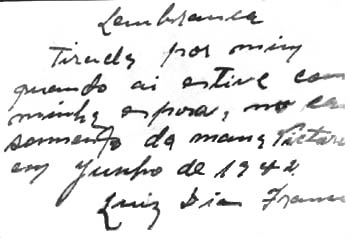 Lembranca
Tirada por mim
quando ai estive com
minha esposa, no ca
samento da mana
em Junho de 1942
Luiz Dias